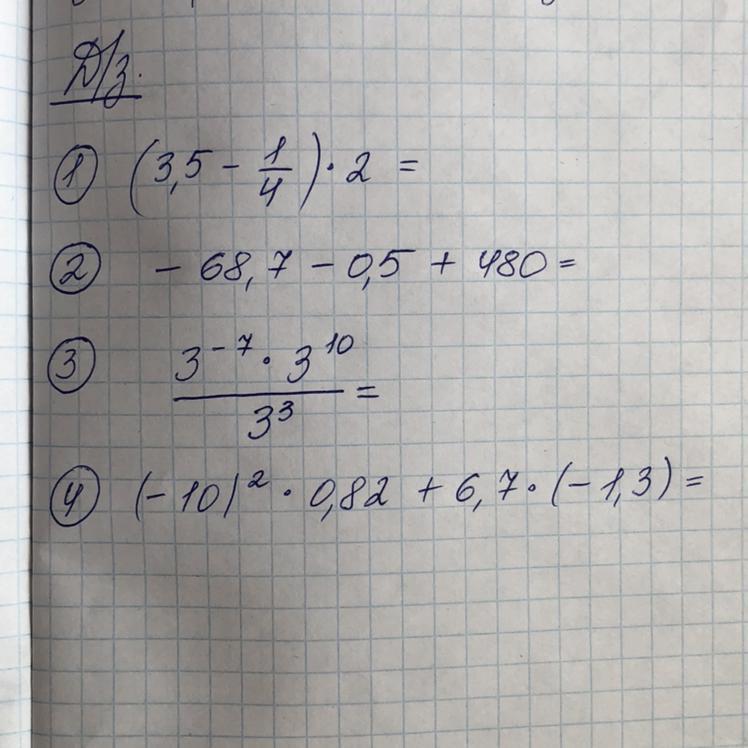 Д/з.
① (3,5 - 1/4) · 2 =
② - 68,7 - 0,5 + 480 =
③ 3⁻⁷ · 3¹⁰ / 3³ =
④ (-10)² · 0,82 + 6,7 · (-1,3) =